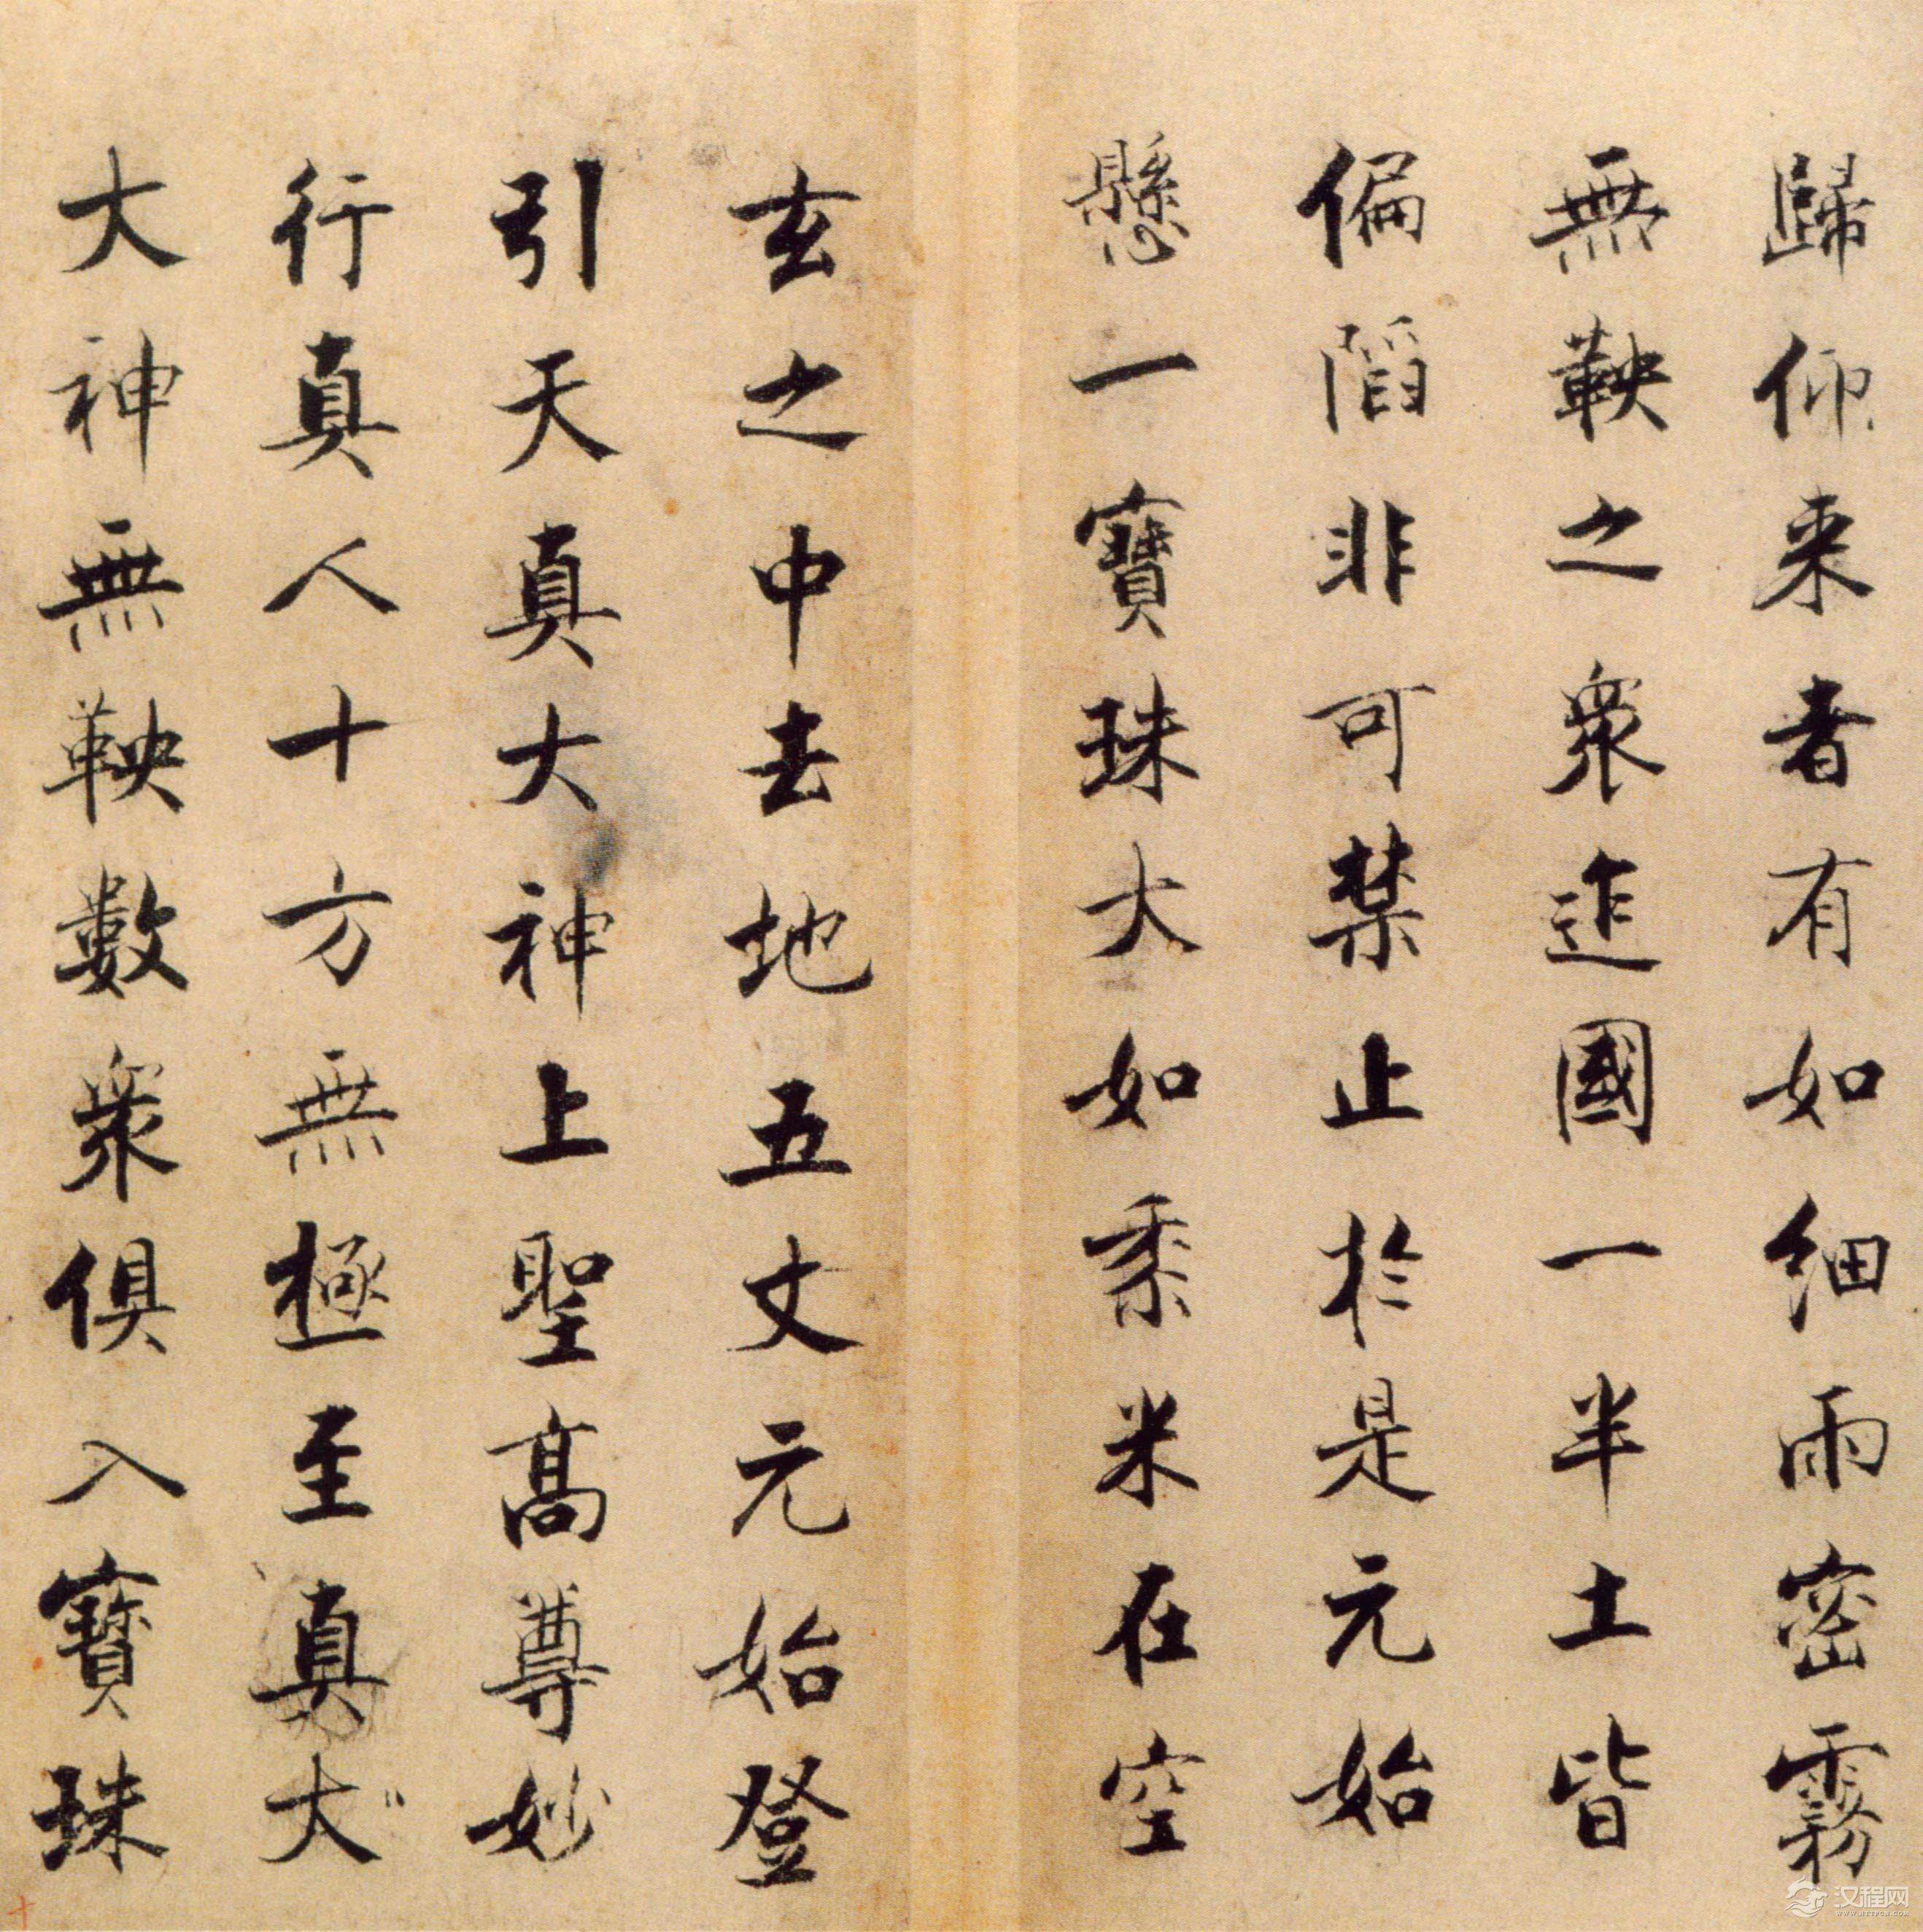 歸仰来者有如細雨密霧
無鞅之衆迮國一半土皆
偏陷非可禁止於是元始
懸一寶珠大如黍米在空
玄之中去地五丈元始登
引天真大神上聖髙尊妙
行真人十方無極至真大
大神無鞅數衆俱入寶珠
十
汉程网
WWW.HTTPCN.COM